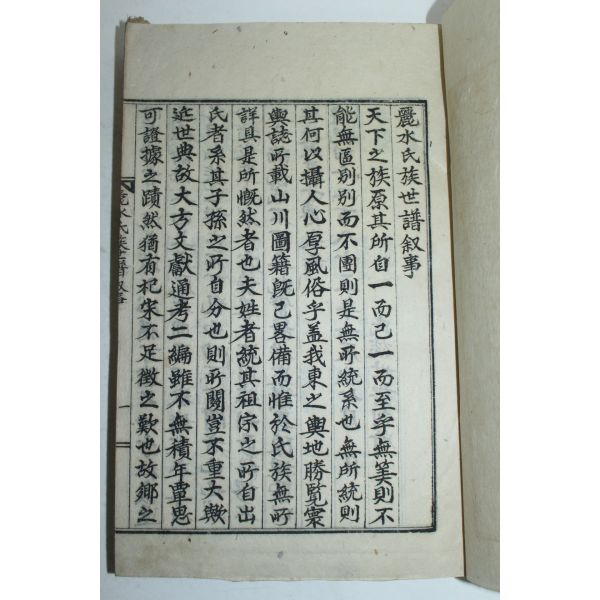 麗水氏族世譜叙事
天下之族原其所自一而已一而至乎無筭則不
能無區別別而不團則是無所統系也無所統則
其何以攝人心厚風俗乎盖我東之輿地勝覽寰
輿誌所載山川圖籍旣已畧備而惟於氏族無所
詳具是所慨然者也夫姓者統其祖宗之所自出
氏者系其子孫之所自分也則所關豈不重大歟
近世典故大方文獻通考二編雖不無積年覃思
可證據之蹟然猶有杞宋不足徵之歎也故鄉之
麗水氏族世譜叙事
一